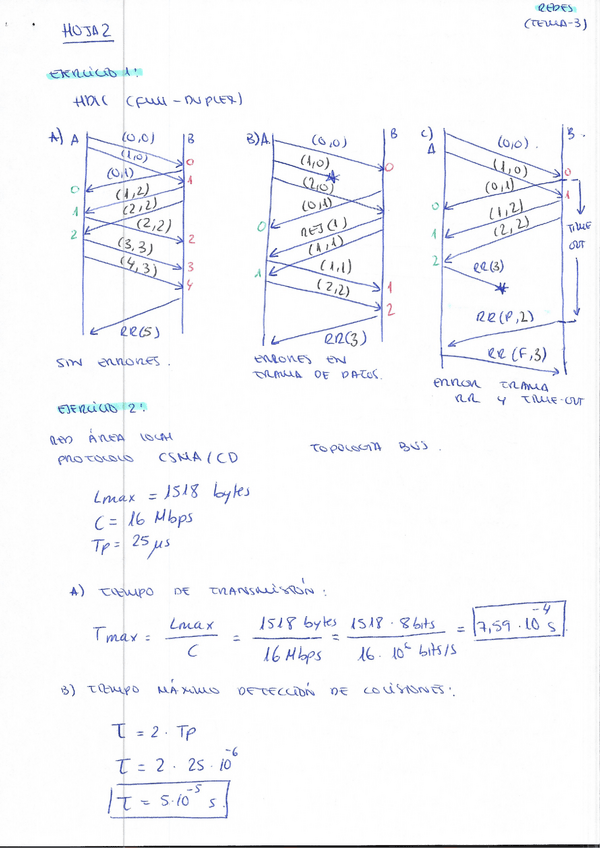 REDES
(TEMA-3)
HOJA 2
EJERCICIO 1:
HDLC (FULL-DUPLEX)
A) A B
(0,0)
(1,0)
0
(0,1)
1
0
(1,2)
(2,2)
1
(2,2)
2
2
(3,3)
3
(4,3)
4
RR(5)
SIN ERRORES.
B) A B
(0,0)
(1,0)
0
(2,0)
(0,1)
0
REJ(1)
(1,1)
1
(1,1)
1
(2,2)
2
RR(3)
ERRORES EN
TRAMA DE DATOS.
C) A B
(0,0)
(1,0)
0
(0,1)
1
0
(1,2)
1
(2,2)
TIME
OUT
2
RR(3)
RR(P,2)
RR(F,3)
ERROR TRAMA
RR Y TIME-OUT
EJERCICIO 2:
RED ÁREA LOCAL
PROTOCOLO CSMA/CD TOPOLOGÍA BUS.
Lmax = 1518 bytes
C = 16 Mbps
Tp = 25 μs
A) TIEMPO DE TRANSMISIÓN:
Tmax = Lmax / C = 1518 bytes / 16 Mbps = 1518 · 8 bits / 16 · 10⁶ bits/s = 7,59 · 10⁻⁴ s.
B) TIEMPO MÁXIMO DETECCIÓN DE COLISIONES:
τ = 2 · Tp
τ = 2 · 25 · 10⁻⁶
τ = 5·10⁻⁵ s.